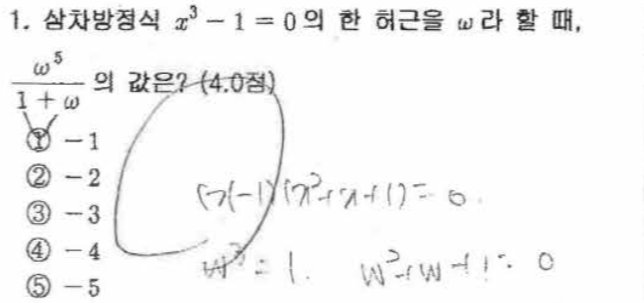 1. 삼차방정식 x³ − 1 = 0의 한 허근을 ω라 할 때,
ω⁵/(1 + ω) 의 값은? (4.0점)
① −1
② −2
③ −3
④ −4
⑤ −5
(x−1)(x²+x+1)=0.
w³=1. w²+w+1=0